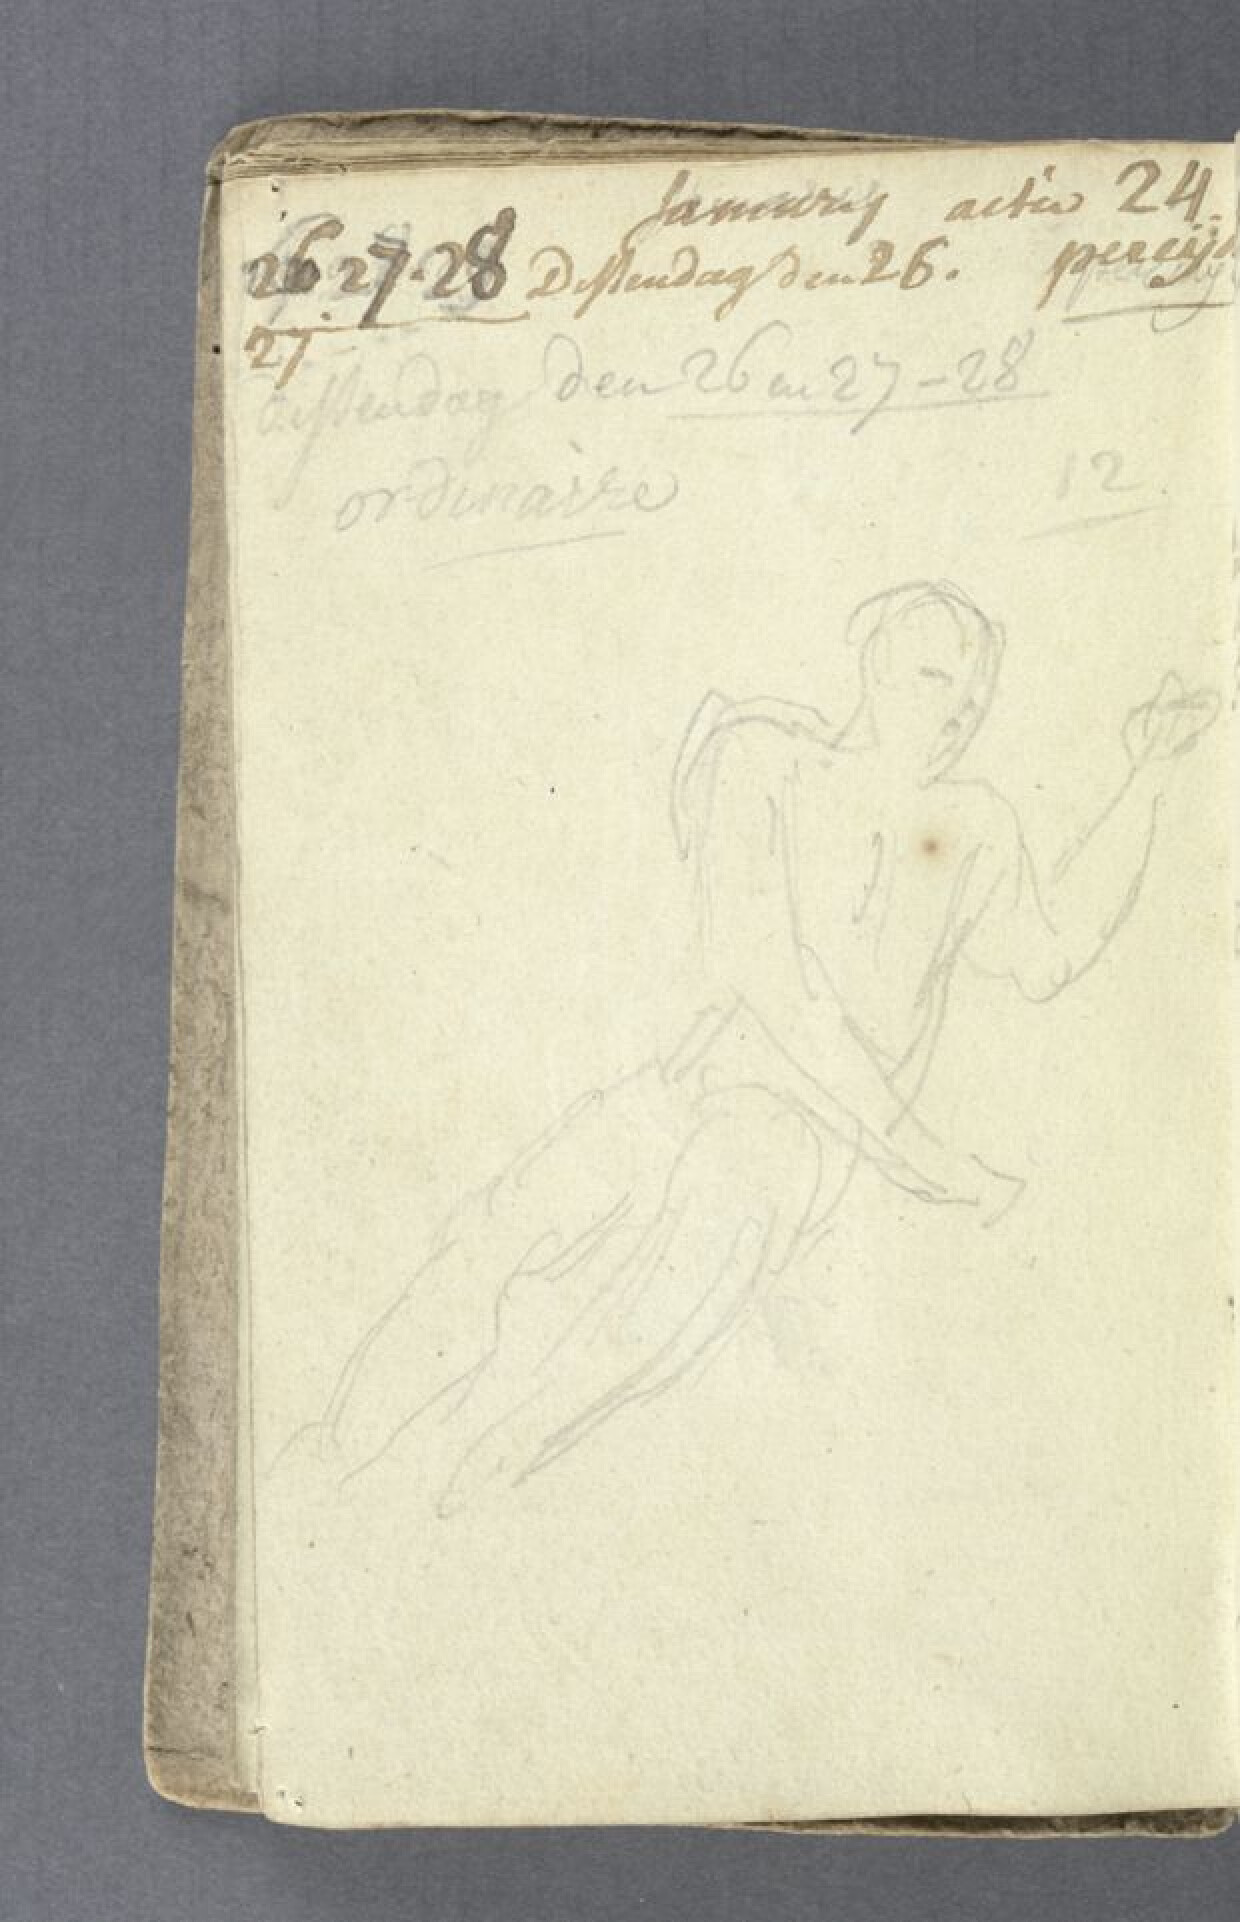 January actiw 24.
26 27-28 Dissendag den 26.
27
dissendag den 26 en 27-28
ordinaire 12